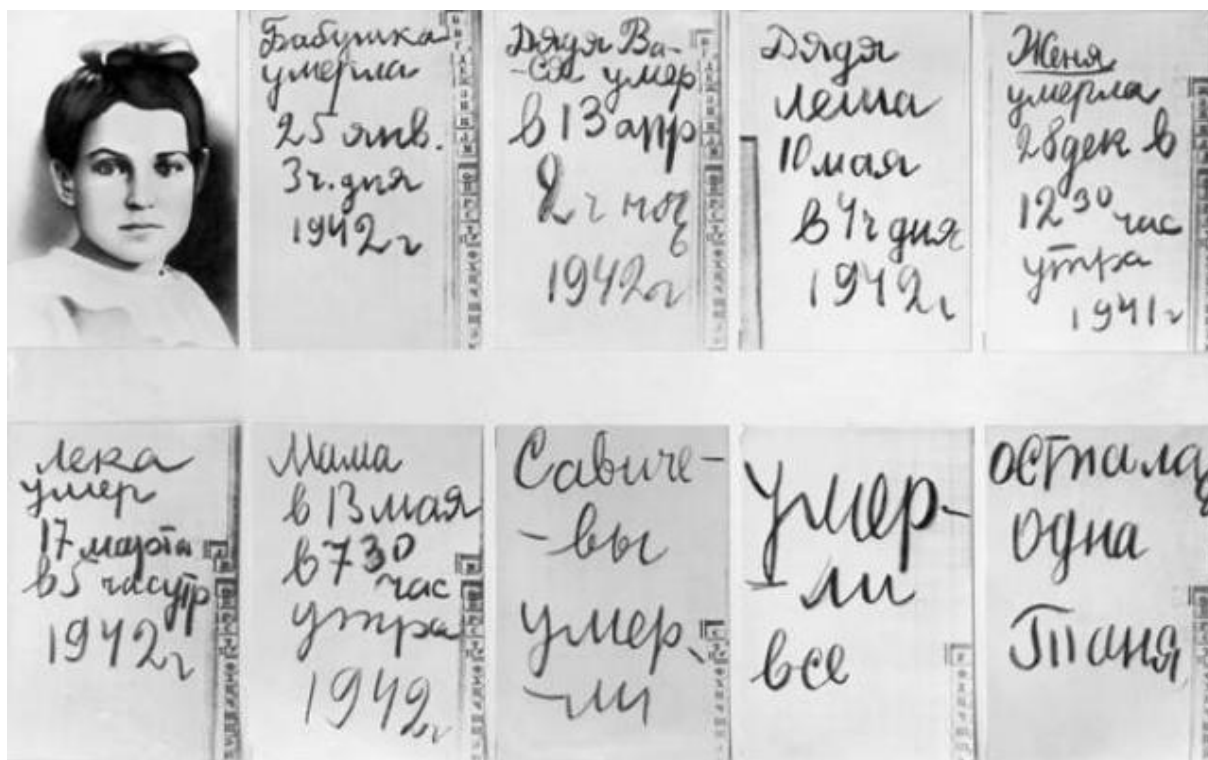 Бабушка
умерла
25 янв.
3 ч. дня
1942 г
Дядя Ва-
-ся умер
в 13 апр
2 ч ноч
ь
1942 г
Дядя
Леша
10 мая
в 4 ч дня
1942 г
Женя
умерла
28 дек в
12 30 час
утра
1941 г
Лека
умер
17 марта
в 5 час утр
1942 г
Мама
в 13 мая
в 7 30
час
утра
1942 г
Савиче-
-вы
умер-
-ли
Умер-
-ли
все
Осталас
одна
Таня